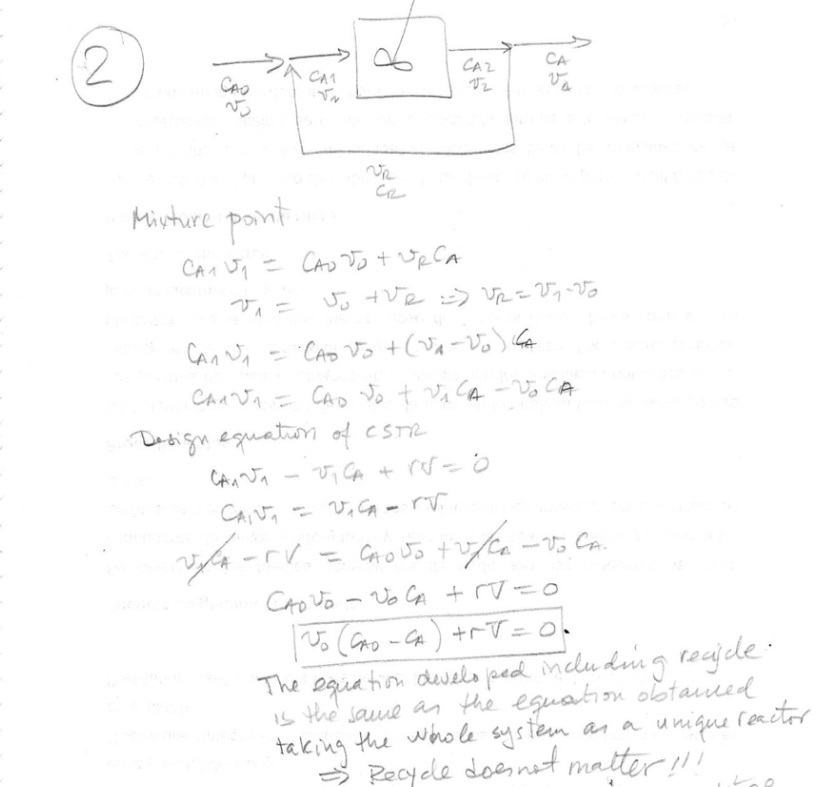 2
CA0
v0
CA1
v1
CA2
v2
CA
v4
vR
CR
Mixture point
CA1 v1 = CA0 v0 + vR CA
v1 = v0 + vR => vR = v1 - v0
CA1 v1 = CA0 v0 + (v1 - v0) CA
CA1 v1 = CA0 v0 + v1 CA - v0 CA
Design equation of CSTR
CA1 v1 - v1 CA + rV = 0
CA1 v1 = v1 CA - rV
v1 CA - rV = CA0 v0 + v1 CA - v0 CA.
CA0 v0 - v0 CA + rV = 0
v0 (CA0 - CA) + rV = 0.
The equation developed including recycle
is the same as the equation obtained
taking the whole system as a unique reactor
=> Recycle does not matter!!!